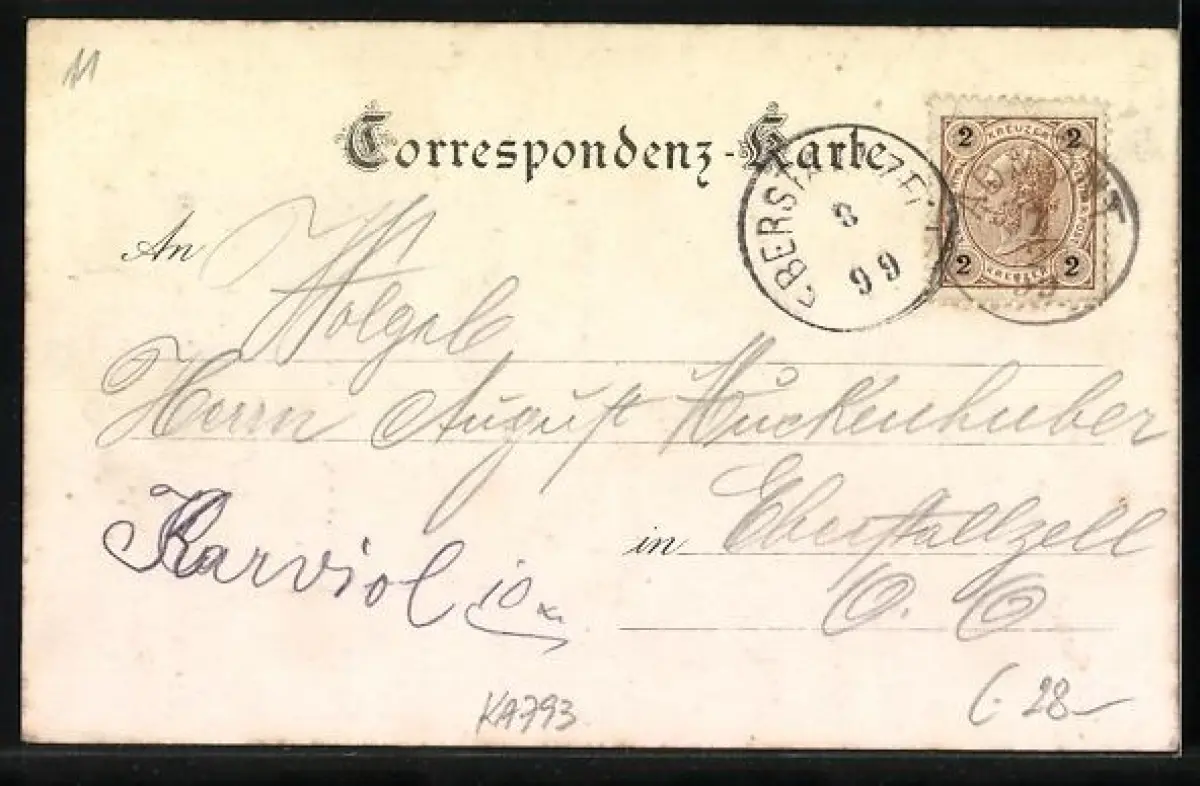 Correspondenz-Karte
2 KREUZER 2
2 KREUZER 2
EBERSTALLZELL
8
99
An
Wolgeb
Herrn August Huckenhuber
in Eberstallzell
O. Ö
Karviol 10 x.
KA793
28-